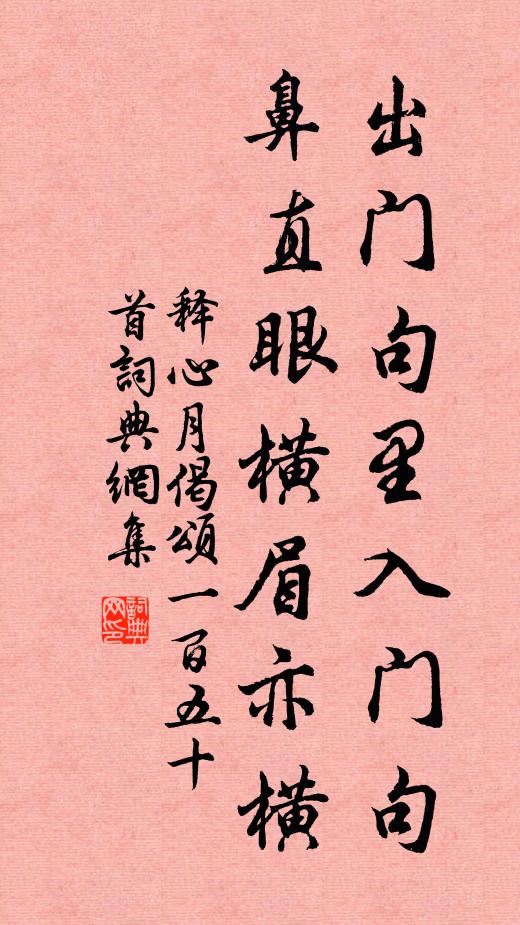 出门句里入门句
鼻直眼横眉亦横
释心月偈頌一百五十
首詞典網集
詞典
网印